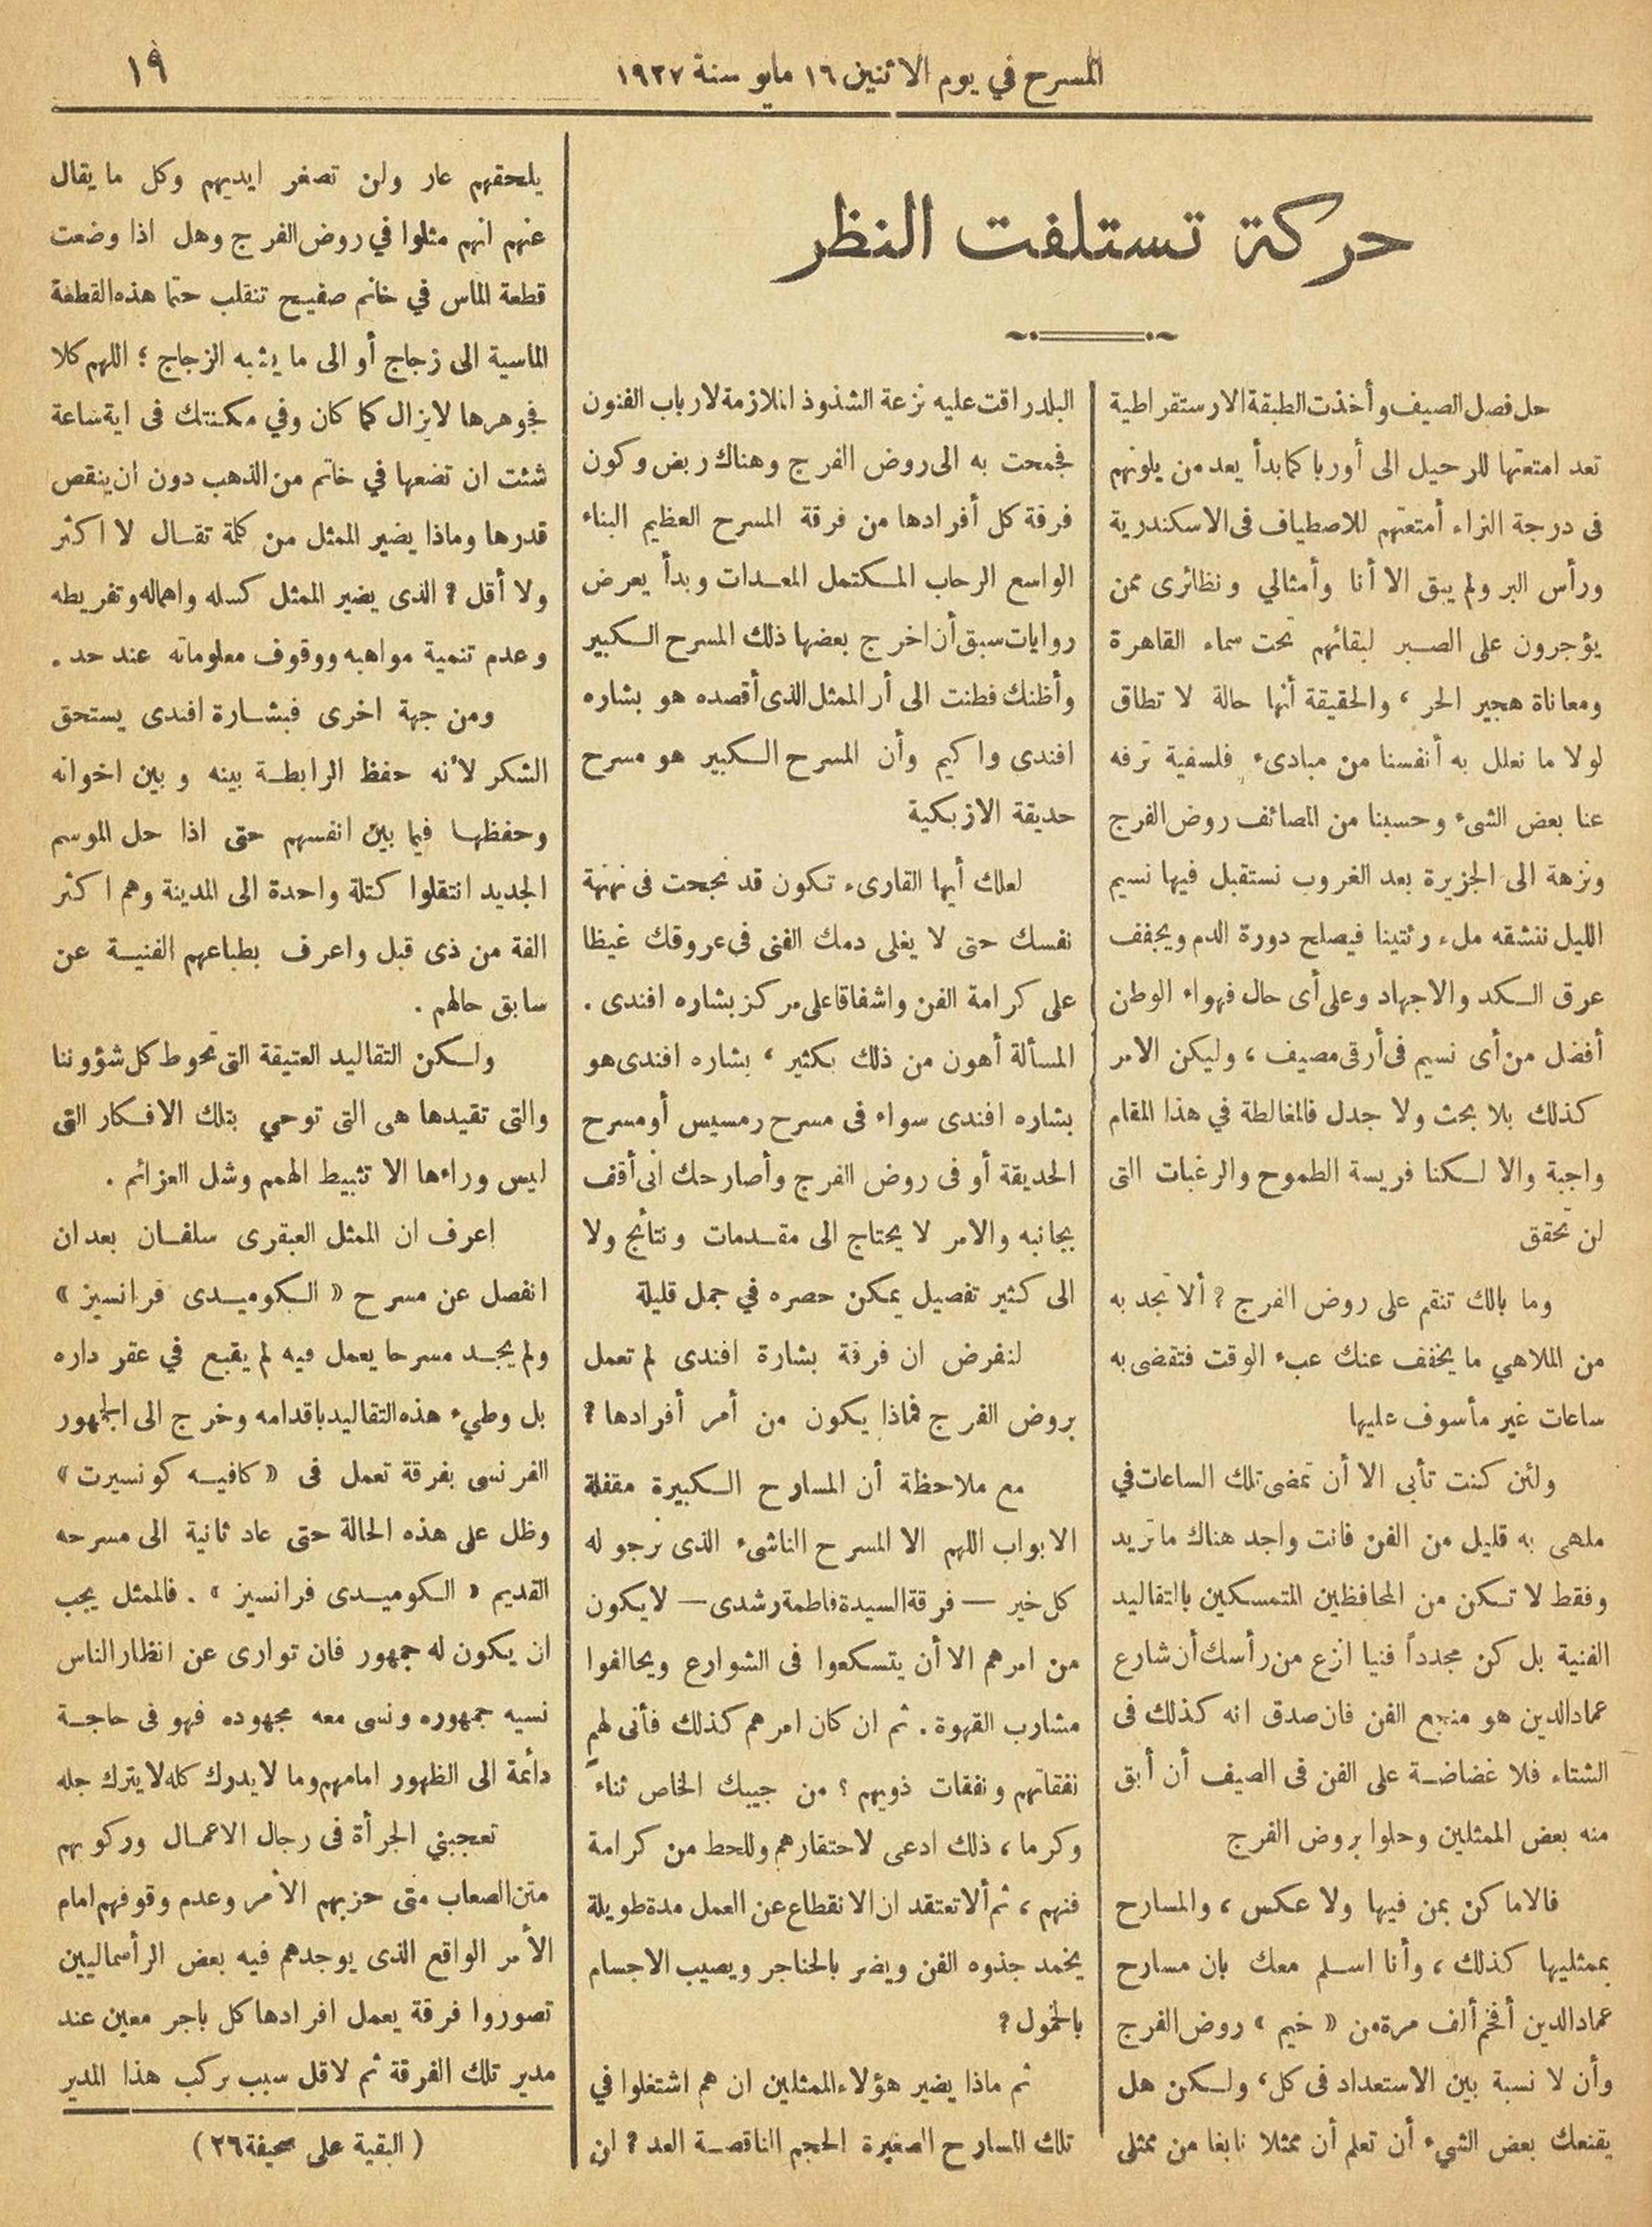 المسرح في يوم الاثنين ١٦ مايو سنة ١٩٢٧
١٩
حركة تستلفت النظر
حل فصل الصيف وأخذت الطبقة الارستقراطية
تعد امتعتها للرحيل الى أوربا كما بدأ يعد من يلونهم
فى درجة الثراء أمتعتهم للاصطياف فى الاسكندرية
ورأس البر ولم يبق الا أنا وأمثالي ونظائرى ممن
يؤجرون على الصبر لبقائهم تحت سماء القاهرة
ومعاناة هجير الحر ، والحقيقة أنها حالة لا تطاق
لولا ما نعلل به أنفسنا من مبادىء فلسفية ترفه
عنا بعض الشىء وحسبنا من المصائف روض الفرج
ونزهة الى الجزيرة بعد الغروب نستقبل فيها نسيم
الليل ننشقه ملء رئتينا فيصلح دورة الدم ويجفف
عرق الكد والاجهاد وعلى أى حال فهواء الوطن
أفضل من أى نسيم فى أرقى مصيف ، وليكن الامر
كذلك بلا بحث ولا جدل فالمغالطة في هذا المقام
واجبة والا لكنا فريسة الطموح والرغبات التى
لن تحقق
وما بالك تنقم على روض الفرج ? ألا تجد به
من الملاهي ما يخفف عنك عبء الوقت فتقضى به
ساعات غير مأسوف عليها
ولئن كنت تأبى الا أن تمضى تلك الساعات في
ملهى به قليل من الفن فانت واجد هناك ما تريد
وفقط لا تكن من المحافظين المتمسكين بالتقاليد
الفنية بل كن مجدداً فنيا انزع من رأسك أن شارع
عماد الدين هو منبع الفن فان صدق انه كذلك فى
الشتاء فلا غضاضة على الفن فى الصيف أن أبق
منه بعض الممثلين وحلوا بروض الفرج
فالاماكن بمن فيها ولا عكس ، والمسارح
بممثليها كذلك ، وأنا اسلم معك بان مسارح
عماد الدين أفخم ألف مرة من « خيم » روض الفرج
وأن لا نسبة بين الاستعداد فى كل ، ولكن هل
يقنعك بعض الشيء أن تعلم أن ممثلا نابغا من ممثلى
البلد راقت عليه نزعة الشذوذ الملازمة لارباب الفنون
فجمحت به الى روض الفرج وهناك ربض وكون
فرقة كل أفرادها من فرقة المسرح العظيم البناء
الواسع الرحاب المكتمل المعدات وبدأ يعرض
روايات سبق أن اخرج بعضها ذلك المسرح الكبير
وأظنك فطنت الى أر الممثل الذى أقصده هو بشاره
افندى واكيم وأن المسرح الكبير هو مسرح
حديقة الازبكية
لعلك أيها القارىء تكون قد نجحت فى نهنهة
نفسك حتى لا يغلى دمك الفنى فى عروقك غيظا
على كرامة الفن واشفاقا على مركز بشاره افندى .
المسألة أهون من ذلك بكثير ، بشاره افندى هو
بشاره افندى سواء فى مسرح رمسيس أو مسرح
الحديقة أو فى روض الفرج وأصارحك انى أقف
بجانبه والامر لا يحتاج الى مقدمات ونتائج ولا
الى كثير تفصيل يمكن حصره في جمل قليلة
لنفرض ان فرقة بشارة افندى لم تعمل
بروض الفرج فماذا يكون من أمر أفرادها ?
مع ملاحظة أن المسارح الكبيرة مقفلة
الابواب اللهم الا المسرح الناشىء الذى نرجو له
كل خير — فرقة السيدة فاطمة رشدى — لا يكون
من امرهم الا أن يتسكعوا فى الشوارع ويحالفوا
مشارب القهوة . ثم ان كان امرهم كذلك فأنى لهم
نفقاتهم ونفقات ذويهم ؟ من جيبك الخاص ثناءً
وكرما ، ذلك ادعى لاحتقارهم وللحط من كرامة
فنهم ، ثم ألا تعتقد ان الانقطاع عن العمل مدة طويلة
يخمد جذوه الفن ويضر بالحناجر ويصيب الاجسام
بالخمول ?
ثم ماذا يضير هؤلاء الممثلين ان هم اشتغلوا في
تلك المسارح الصغيرة الحجم الناقصة العد ? ان
يلحقهم عار ولن تصغر ايديهم وكل ما يقال
عنهم انهم مثلوا في روض الفرج وهل اذا وضعت
قطعة الماس في خاتم صفيح تنقلب حتما هذه القطعة
الماسية الى زجاج أو الى ما يشبه الزجاج ؛ اللهم كلا
فجوهرها لا يزال كما كان وفي مكنتك فى اية ساعة
شئت ان تضعها في خاتم من الذهب دون ان ينقص
قدرها وماذا يضير الممثل من كلمة تقال لا اكثر
ولا أقل ? الذى يضير الممثل كسله واهماله وتفريطه
وعدم تنمية مواهبه ووقوف معلوماته عند حد .
ومن جهة اخرى فبشارة افندى يستحق
الشكر لأنه حفظ الرابطة بينه وبين اخوانه
وحفظها فيما بين انفسهم حتى اذا حل الموسم
الجديد انتقلوا كتلة واحدة الى المدينة وهم اكثر
الفة من ذى قبل واعرف بطباعهم الفنية عن
سابق حالهم .
ولكن التقاليد العتيقة التى تحوط كل شؤوننا
والتى تقيدها هى التى توحي بتلك الافكار التى
ليس وراءها الا تثبيط الهمم وشل العزائم .
اعرف ان الممثل العبقرى سلفان بعد ان
انفصل عن مسرح « الكوميدى فرانسيز »
ولم يجد مسرحا يعمل فيه لم يقبع في عقر داره
بل وطيء هذه التقاليد باقدامه وخرج الى الجمهور
الفرنسى بفرقة تعمل فى « كافيه كونسيرت »
وظل على هذه الحالة حتى عاد ثانية الى مسرحه
القديم « الكوميدى فرانسيز » . فالممثل يجب
ان يكون له جمهور فان توارى عن انظار الناس
نسيه جمهوره ونسى معه مجهوده فهو فى حاجة
دائمة الى الظهور امامهم وما لا يدرك كله لا يترك جله
تعجبني الجرأة فى رجال الاعمال وركوبهم
متن الصعاب متى حزبهم الأمر وعدم وقوفهم امام
الأمر الواقع الذى يوجدهم فيه بعض الرأسماليين
تصوروا فرقة يعمل افرادها كل باجر معين عند
مدير تلك الفرقة ثم لاقل سبب يركب هذا المدير
( البقية على صحيفة ٢٦ )